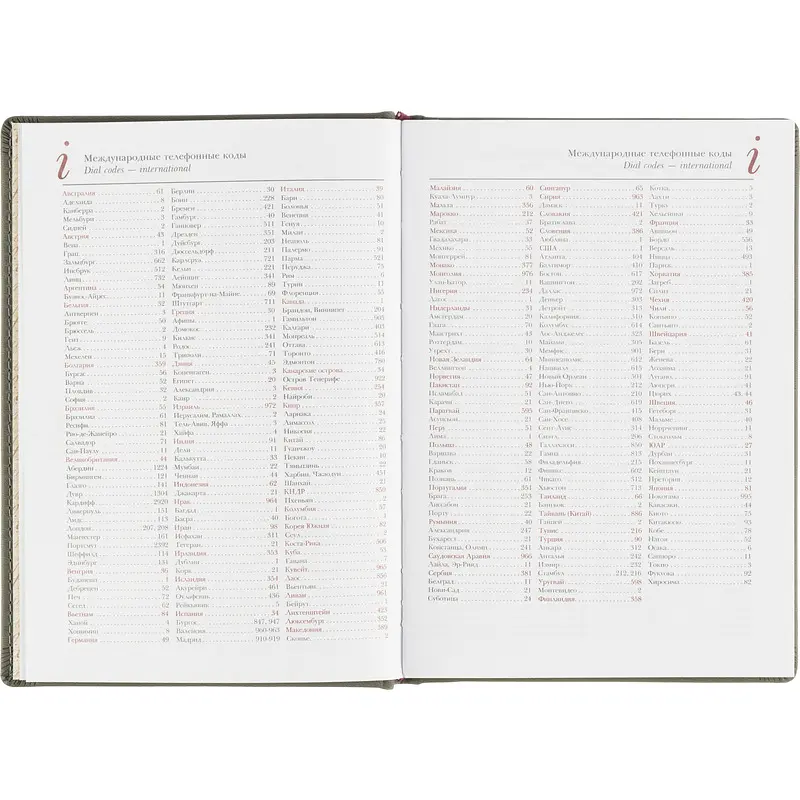 i
Международные телефонные коды
Dial codes — international
Австралия 61
Аделаида 8
Канберра 2
Мельбурн 3
Сидней 2
Австрия 43
Вена 1
Грац 316
Зальцбург 662
Инсбрук 512
Линц 732
Аргентина 54
Буэнос-Айрес 11
Бельгия 32
Антверпен 3
Брюгге 50
Брюссель 2
Гент 9
Льеж 4
Мехелен 15
Болгария 359
Бургас 56
Варна 52
Пловдив 32
София 2
Бразилия 55
Бразилиа 61
Ресифи 81
Рио-де-Жанейро 21
Сальвадор 71
Сан-Паулу 11
Великобритания 44
Абердин 1224
Бирмингем 121
Глазго 141
Дувр 1304
Кардифф 2920
Ливерпуль 151
Лидс 113
Лондон 207, 208
Манчестер 161
Портсмут 2392
Шеффилд 114
Эдинбург 131
Венгрия 36
Будапешт 1
Дебрецен 52
Печ 72
Сегед 62
Вьетнам 84
Ханой 4
Хошимин 8
Германия 49
Берлин 30
Бонн 228
Бремен 421
Гамбург 40
Ганновер 511
Дрезден 351
Дуйсбург 203
Дюссельдорф 211
Карлсруэ 721
Кельн 221
Лейпциг 341
Мюнхен 89
Франкфурт-на-Майне 69
Штутгарт 711
Греция 30
Афины 1
Домокос 232
Килкис 341
Родос 241
Трикалы 71
Дания 45
Копенгаген 3
Египет 20
Александрия 3
Каир 2
Израиль 972
Иерусалим, Рамаллах 2
Тель-Авив, Яффа 3
Хайфа 4
Индия 91
Дели 11
Калькутта 33
Мумбаи 22
Ченнаи 44
Индонезия 62
Джакарта 21
Ирак 964
Багдад 1
Басра 40
Иран 98
Исфахан 311
Тегеран 21
Ирландия 353
Дублин 1
Корк 21
Исландия 354
Акурейри 461
Оулафсвик 436
Рейкьявик 5
Испания 34
Бургос 847, 947
Валенсия 960-963
Мадрид 910-919
Италия 39
Бари 80
Болонья 51
Венеция 41
Генуя 10
Милан 2
Неаполь 81
Палермо 91
Парма 521
Перуджа 75
Рим 6
Турин 11
Флоренция 55
Канада 1
Брандон, Виннипег 204
Гамильтон 905
Калгари 403
Монреаль 514
Оттава 613
Торонто 416
Эдмонтон 780
Канарские острова 34
Остров Тенерифе 922
Кения 254
Найроби 20
Кипр 357
Ларнака 24
Лимассол 25
Никосия 22
Китай 86
Гуанчжоу 20
Пекин 10
Тяньцзинь 22
Харбин, Чжаодун 451
Шанхай 21
КНДР 850
Пхеньян 2
Колумбия 57
Богота 1
Корея Южная 82
Сеул 2
Коста-Рика 506
Куба 53
Гавана 7
Кувейт 965
Лаос 856
Вьентьян 21
Ливан 961
Бейрут 1
Лихтенштейн 423
Люксембург 352
Македония 389
Скопье 2
i
Международные телефонные коды
Dial codes — international
Малайзия 60
Куала-Лумпур 3
Мальта 356
Марокко 212
Рабат 37
Мексика 52
Гвадалахара 33
Мехико 55
Монтеррей 81
Монако 377
Монголия 976
Улан-Батор 11
Нигерия 234
Лагос 1
Нидерланды 31
Амстердам 20
Гаага 70
Маастрихт 43
Роттердам 10
Утрехт 30
Новая Зеландия 64
Веллингтон 4
Норвегия 47
Пакистан 92
Исламабад 51
Карачи 21
Парагвай 595
Асунсьон 21
Перу 51
Лима 1
Польша 48
Варшава 22
Гданьск 58
Краков 12
Познань 61
Португалия 351
Брага 253
Лиссабон 21
Порту 22
Румыния 40
Александрия 247
Бухарест 21
Констанца, Олимп 241
Саудовская Аравия 966
Лайла, Эр-Рияд 1
Сербия 381
Белград 11
Нови-Сад 21
Суботица 24
Сингапур 65
Сирия 963
Дамаск 11
Словакия 421
Братислава 2
Словения 386
Любляна 1
США 1
Атланта 404
Балтимор 410
Бостон 617
Вашингтон 202
Даллас 972
Денвер 303
Детройт 313
Калифорния 510
Колумбус 614
Лос-Анджелес 323
Майами 305
Мемфис 901
Миннеаполис 612
Нашвилл 615
Новый Орлеан 504
Нью-Йорк 212
Сан-Антонио 210
Сан-Диего 619
Сан-Франциско 415
Сан-Хосе 408
Сент-Луис 314
Сиэтл 206
Таллахасси 850
Тампа 813
Филадельфия 215
Финикс 602
Чикаго 312
Хьюстон 713
Таиланд 66
Бангкок 2
Тайвань (Китай) 886
Тайпей 2
Тунис 216
Турция 90
Анкара 312
Анталья 242
Измир 232
Стамбул 212, 216
Уругвай 598
Монтевидео 2
Финляндия 358
Котка 5
Лахти 3
Турку 2
Хельсинки 9
Франция 33
Авиньон 49
Бордо 556
Версаль 13
Ницца 493
Париж 1
Хорватия 385
Загреб 1
Сплит 21
Чехия 420
Чили 56
Консепсьон 52
Сантьяго 2
Швейцария 41
Базель 61
Берн 31
Женева 22
Лозанна 21
Лугано 91
Люцерн 41
Цюрих 43, 44
Швеция 46
Гетеборг 31
Мальме 40
Норрчепинг 11
Стокгольм 8
ЮАР 27
Дурбан 31
Йоханнесбург 11
Кейптаун 21
Претория 12
Япония 81
Йокогама 995
Кавасаки 44
Киото 75
Китакюсю 93
Кобе 78
Нагоя 52
Осака 6
Саппоро 11
Токио 3
Фукуока 92
Хиросима 82